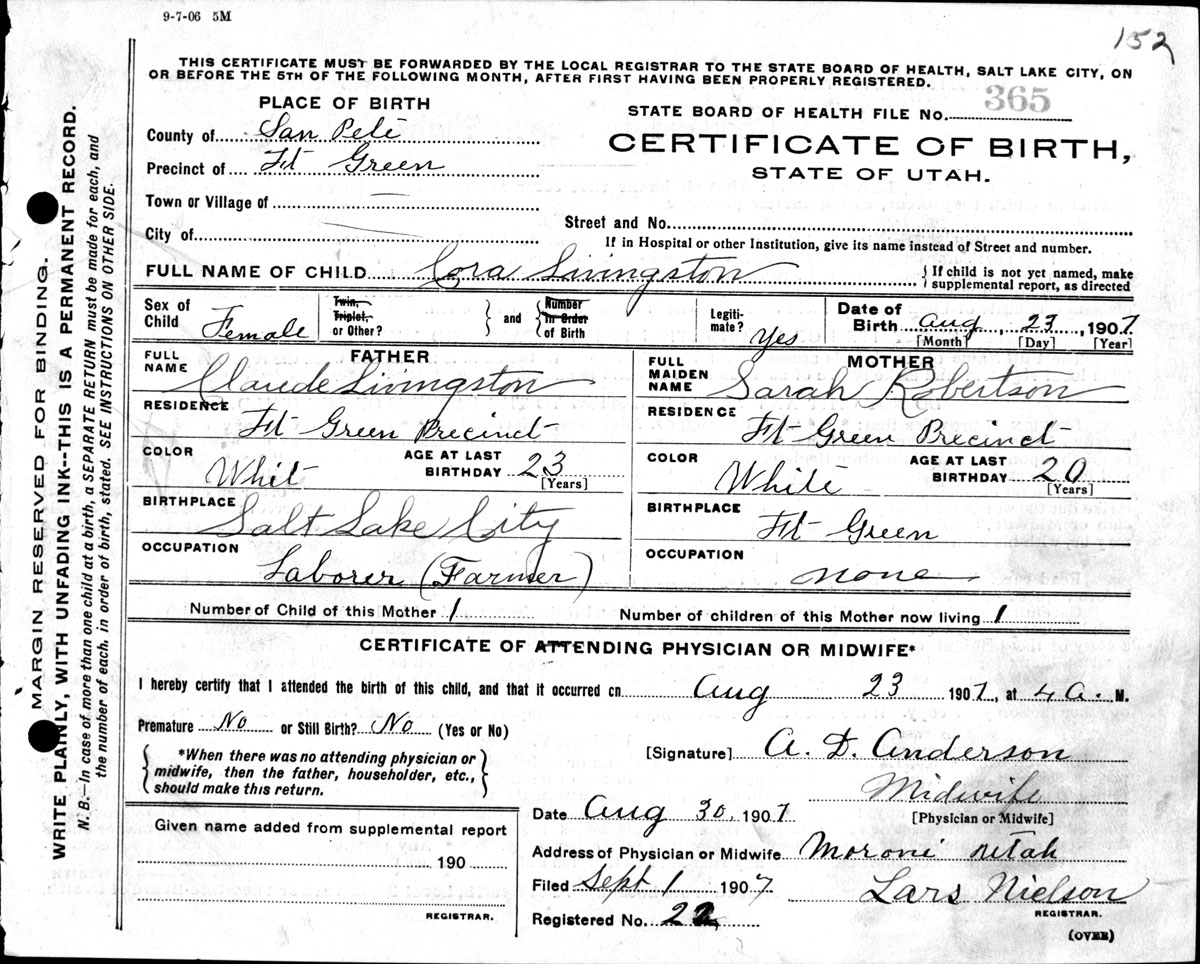 9-7-06 5M
152
THIS CERTIFICATE MUST BE FORWARDED BY THE LOCAL REGISTRAR TO THE STATE BOARD OF HEALTH, SALT LAKE CITY, ON
OR BEFORE THE 5TH OF THE FOLLOWING MONTH, AFTER FIRST HAVING BEEN PROPERLY REGISTERED.
PLACE OF BIRTH
STATE BOARD OF HEALTH FILE No. 365
County of San Pete
CERTIFICATE OF BIRTH,
Precinct of Ft Green
STATE OF UTAH.
Town or Village of —
Street and No.
City of
If in Hospital or other Institution, give its name instead of Street and number.
FULL NAME OF CHILD Cora Livingston
} If child is not yet named, make
supplemental report, as directed
Sex of Child Female
Twin, Triplet, or Other? } and { Number In Order of Birth
Legiti-mate? Yes
Date of Birth Aug, 23, 1907
[Month] [Day] [Year]
FATHER
FULL NAME Claude Livingston
RESIDENCE Ft Green Precinct
COLOR Whit AGE AT LAST BIRTHDAY 23 [Years]
BIRTHPLACE Salt Lake City
OCCUPATION Laborer (Farmer)
MOTHER
FULL MAIDEN NAME Sarah Robertson
RESIDENCE Ft Green Precinct
COLOR White AGE AT LAST BIRTHDAY 20 [Years]
BIRTHPLACE Ft Green
OCCUPATION none
Number of Child of this Mother 1 Number of children of this Mother now living 1
CERTIFICATE OF ATTENDING PHYSICIAN OR MIDWIFE*
I hereby certify that I attended the birth of this child, and that it occurred on Aug 23 1907, at 4 a. M.
Premature No or Still Birth? No (Yes or No)
{ *When there was no attending physician or
midwife, then the father, householder, etc.,
should make this return. }
[Signature] A. D. Anderson
Midwife
[Physician or Midwife]
Date Aug 30, 1907
Given name added from supplemental report
190
REGISTRAR.
Address of Physician or Midwife Moroni Utah
Filed Sept 1 1907 Lars Nielson
REGISTRAR.
Registered No. 22
(OVER)
MARGIN RESERVED FOR BINDING.
WRITE PLAINLY, WITH UNFADING INK--THIS IS A PERMANENT RECORD.
N. B.—In case of more than one child at a birth, a SEPARATE RETURN must be made for each, and
the number of each, in order of birth, stated. SEE INSTRUCTIONS ON OTHER SIDE.